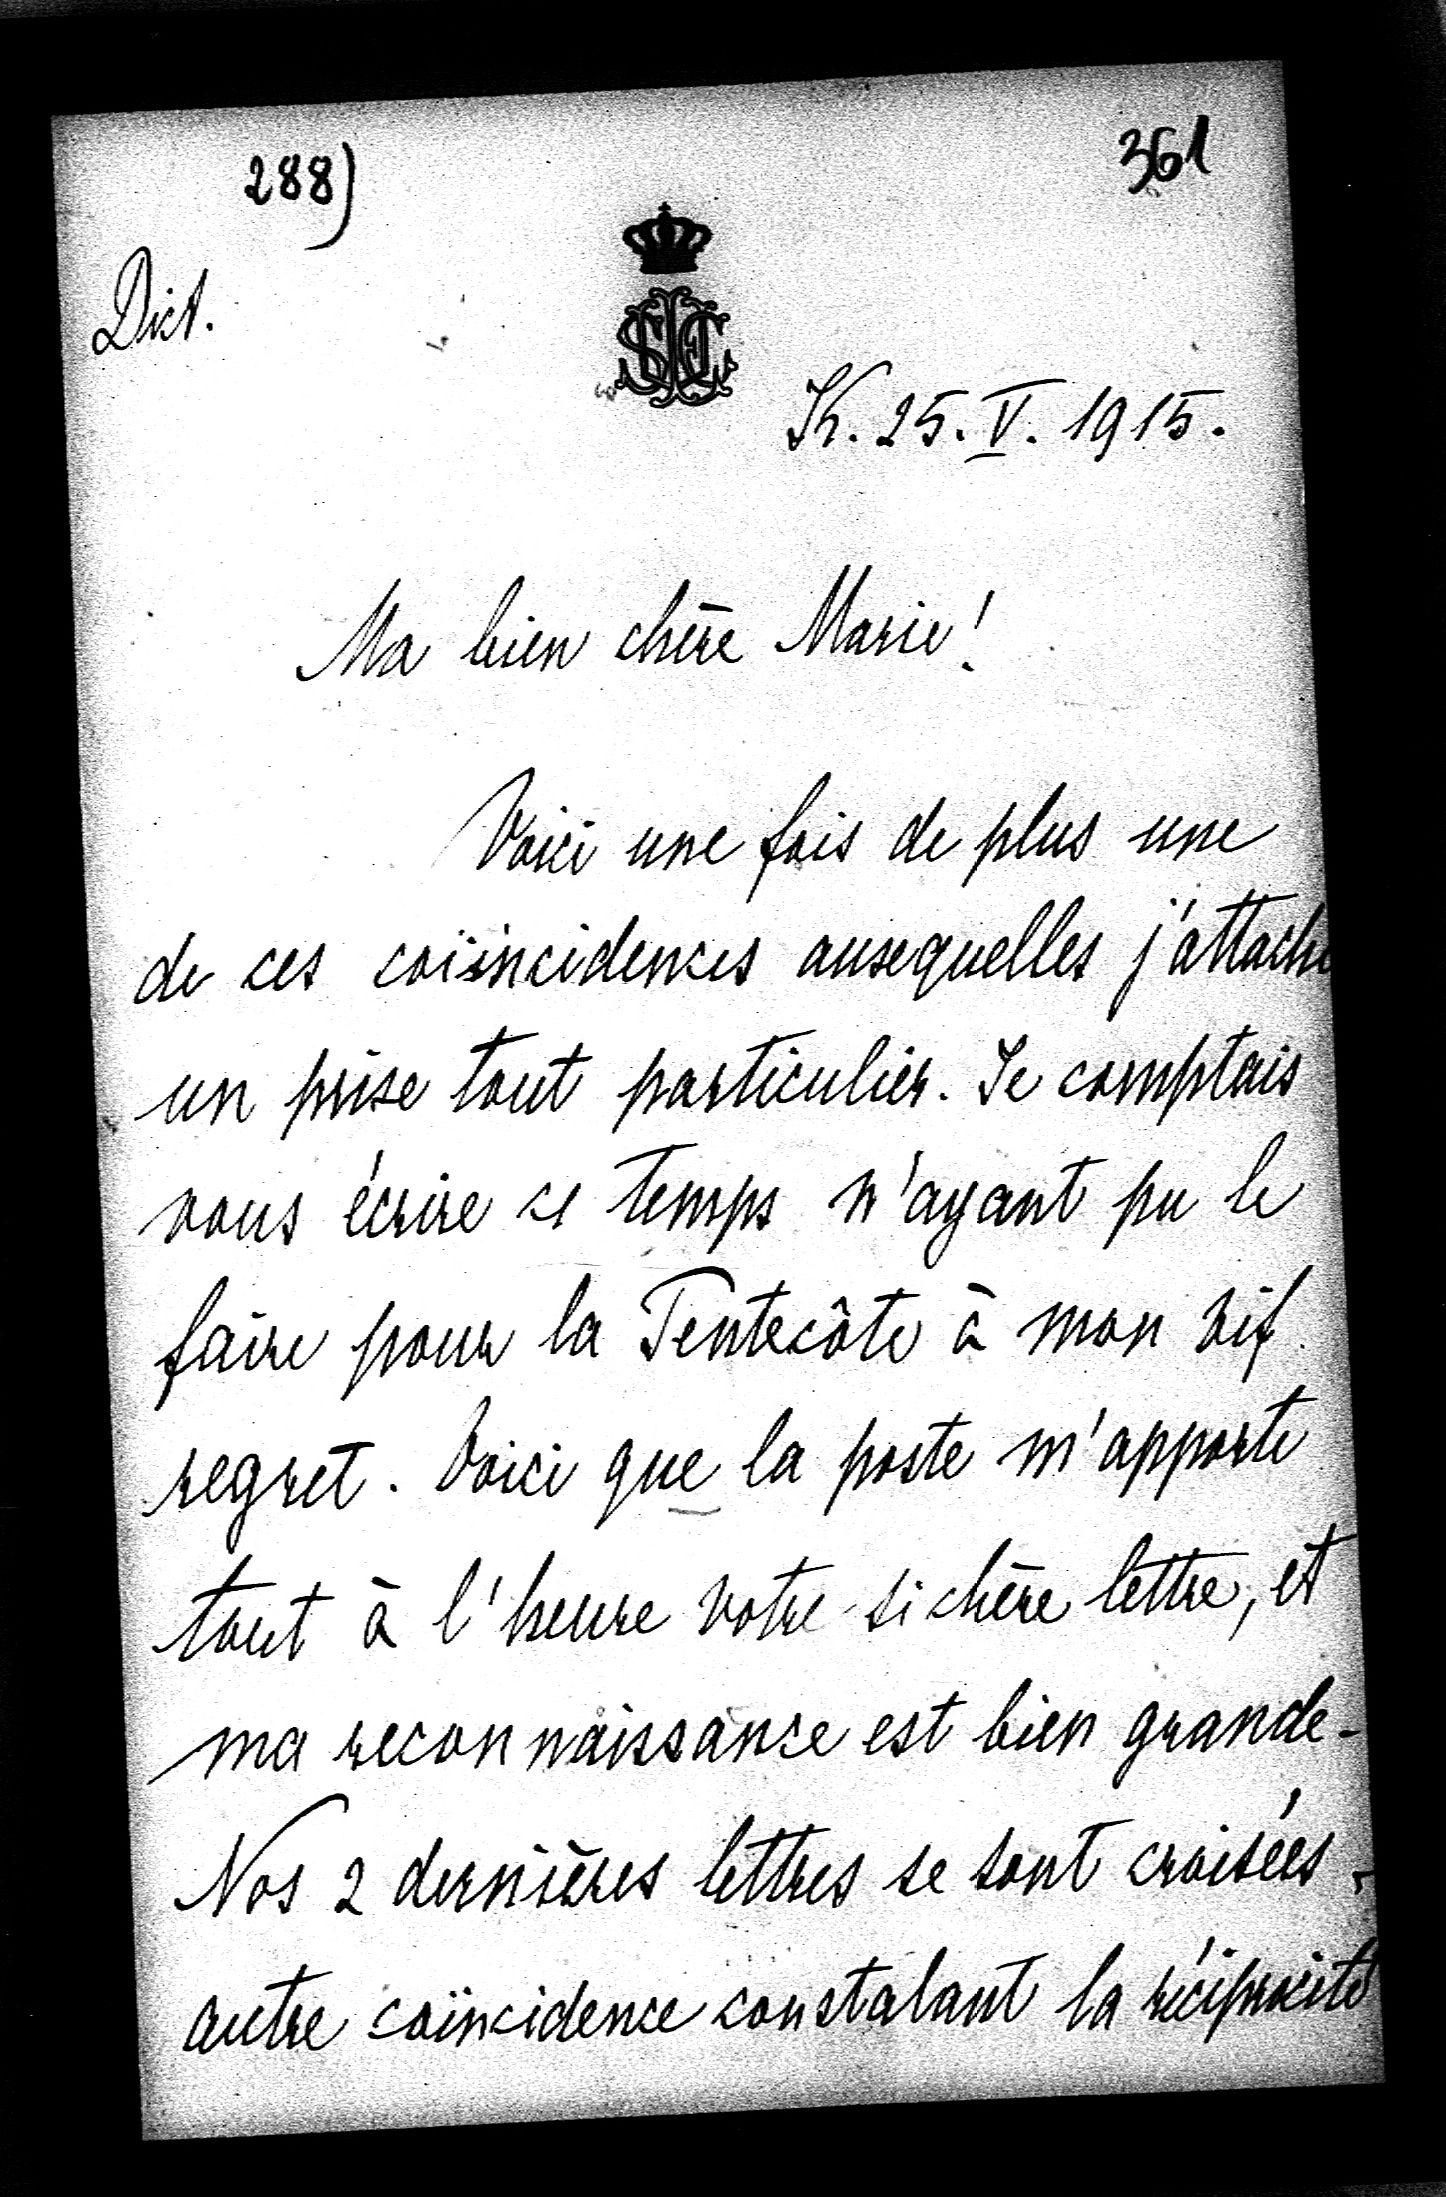 288)
361
Dict.
K. 25. V. 1915.
Ma bien chère Marie!
Voici une fois de plus une
de ces coïincidences auxquelles j'attache
un prix tout particulier. Je comptais
vous écrire ce temps n'ayant pu le
faire pour la Pentecôte à mon vif
regret. Voici que la poste m'apporte
tout à l'heure votre si chère lettre, et
ma reconnaissance est bien grande-
Nos 2 dernières lettres se sont croisées -
autre coïncidence constatant la réciprocité